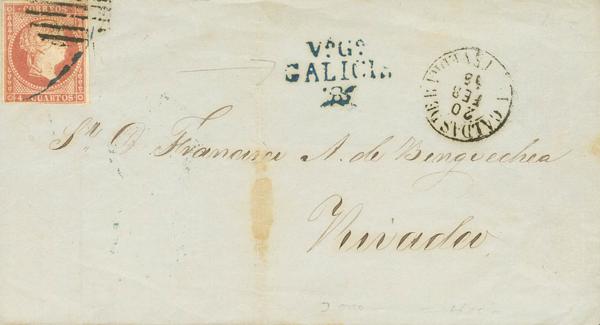 CORREOS
4 CUARTOS
VªGª
GALICIA
20
FEB
Sr. D. Francisco A. de Bengoechea
Rivadeo